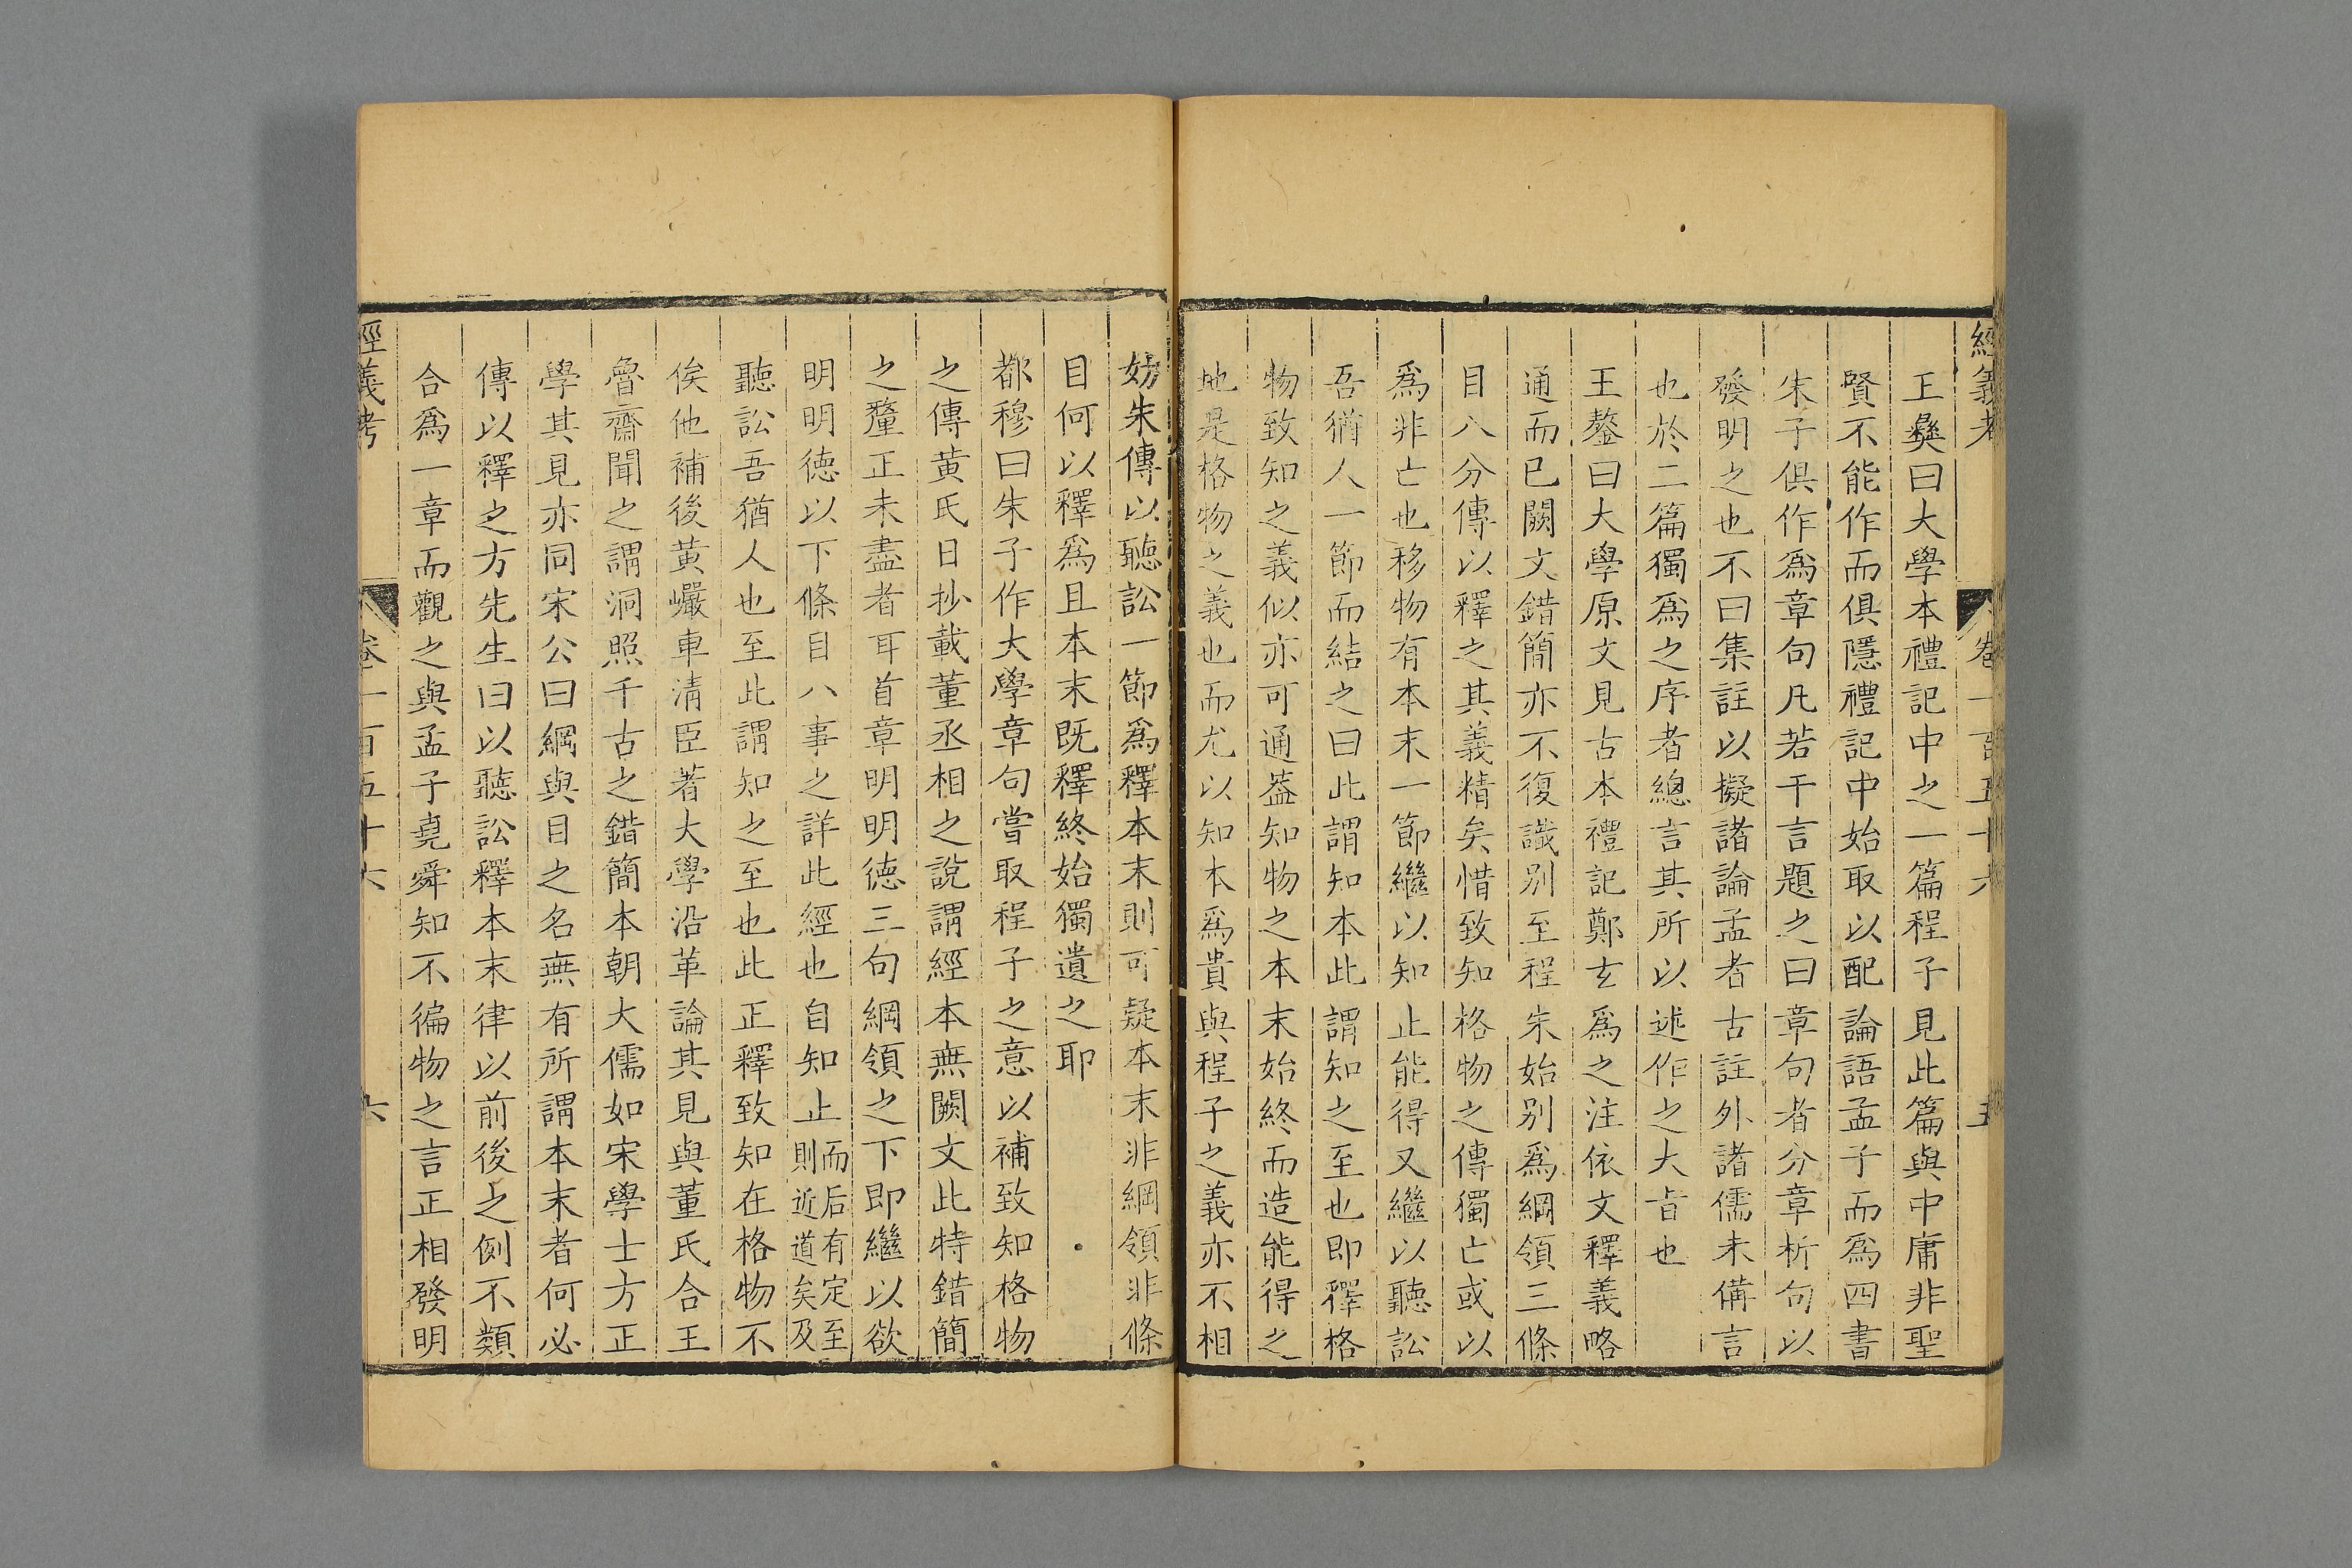 經義考 卷一百五十六 五
王彝曰大學本禮記中之一篇程子見此篇與中庸非聖
賢不能作而俱隱禮記中始取以配論語孟子而爲四書
朱子俱作爲章句凡若干言題之曰章句者分章析句以
發明之也不曰集註以擬諸論孟者古註外諸儒未備言
也於二篇獨爲之序者總言其所以述作之大旨也
王鏊曰大學原文見古本禮記鄭玄爲之注依文釋義略
通而已闕文錯簡亦不復識别至程朱始别爲綱領三條
目八分傳以釋之其義精矣惜致知格物之傳獨亡或以
爲非亡也移物有本末一節繼以知止能得又繼以聽訟
吾猶人一節而結之曰此謂知本此謂知之至也即釋格
物致知之義似亦可通葢知物之本末始終而造能得之
地是格物之義也而尤以知本爲貴與程子之義亦不相
妨朱傳以聽訟一節爲釋本末則可疑本末非綱領非條
目何以釋爲且本末既釋終始獨遺之耶
都穆曰朱子作大學章句嘗取程子之意以補致知格物
之傳黄氏日抄載董丞相之說謂經本無闕文此特錯簡
之釐正未盡者耳首章明明德三句綱領之下即繼以欲
明明德以下條目八事之詳此經也自知止而后有定至則近道矣及
聽訟吾猶人也至此謂知之至也此正釋致知在格物不
俟他補後黄巖車清臣著大學沿革論其見與董氏合王
魯齋聞之謂洞照千古之錯簡本朝大儒如宋學士方正
學其見亦同宋公曰綱與目之名無有所謂本末者何必
傳以釋之方先生曰以聽訟釋本末律以前後之例不類
合爲一章而觀之與孟子堯舜知不徧物之言正相發明
經義考 卷一百五十六 六